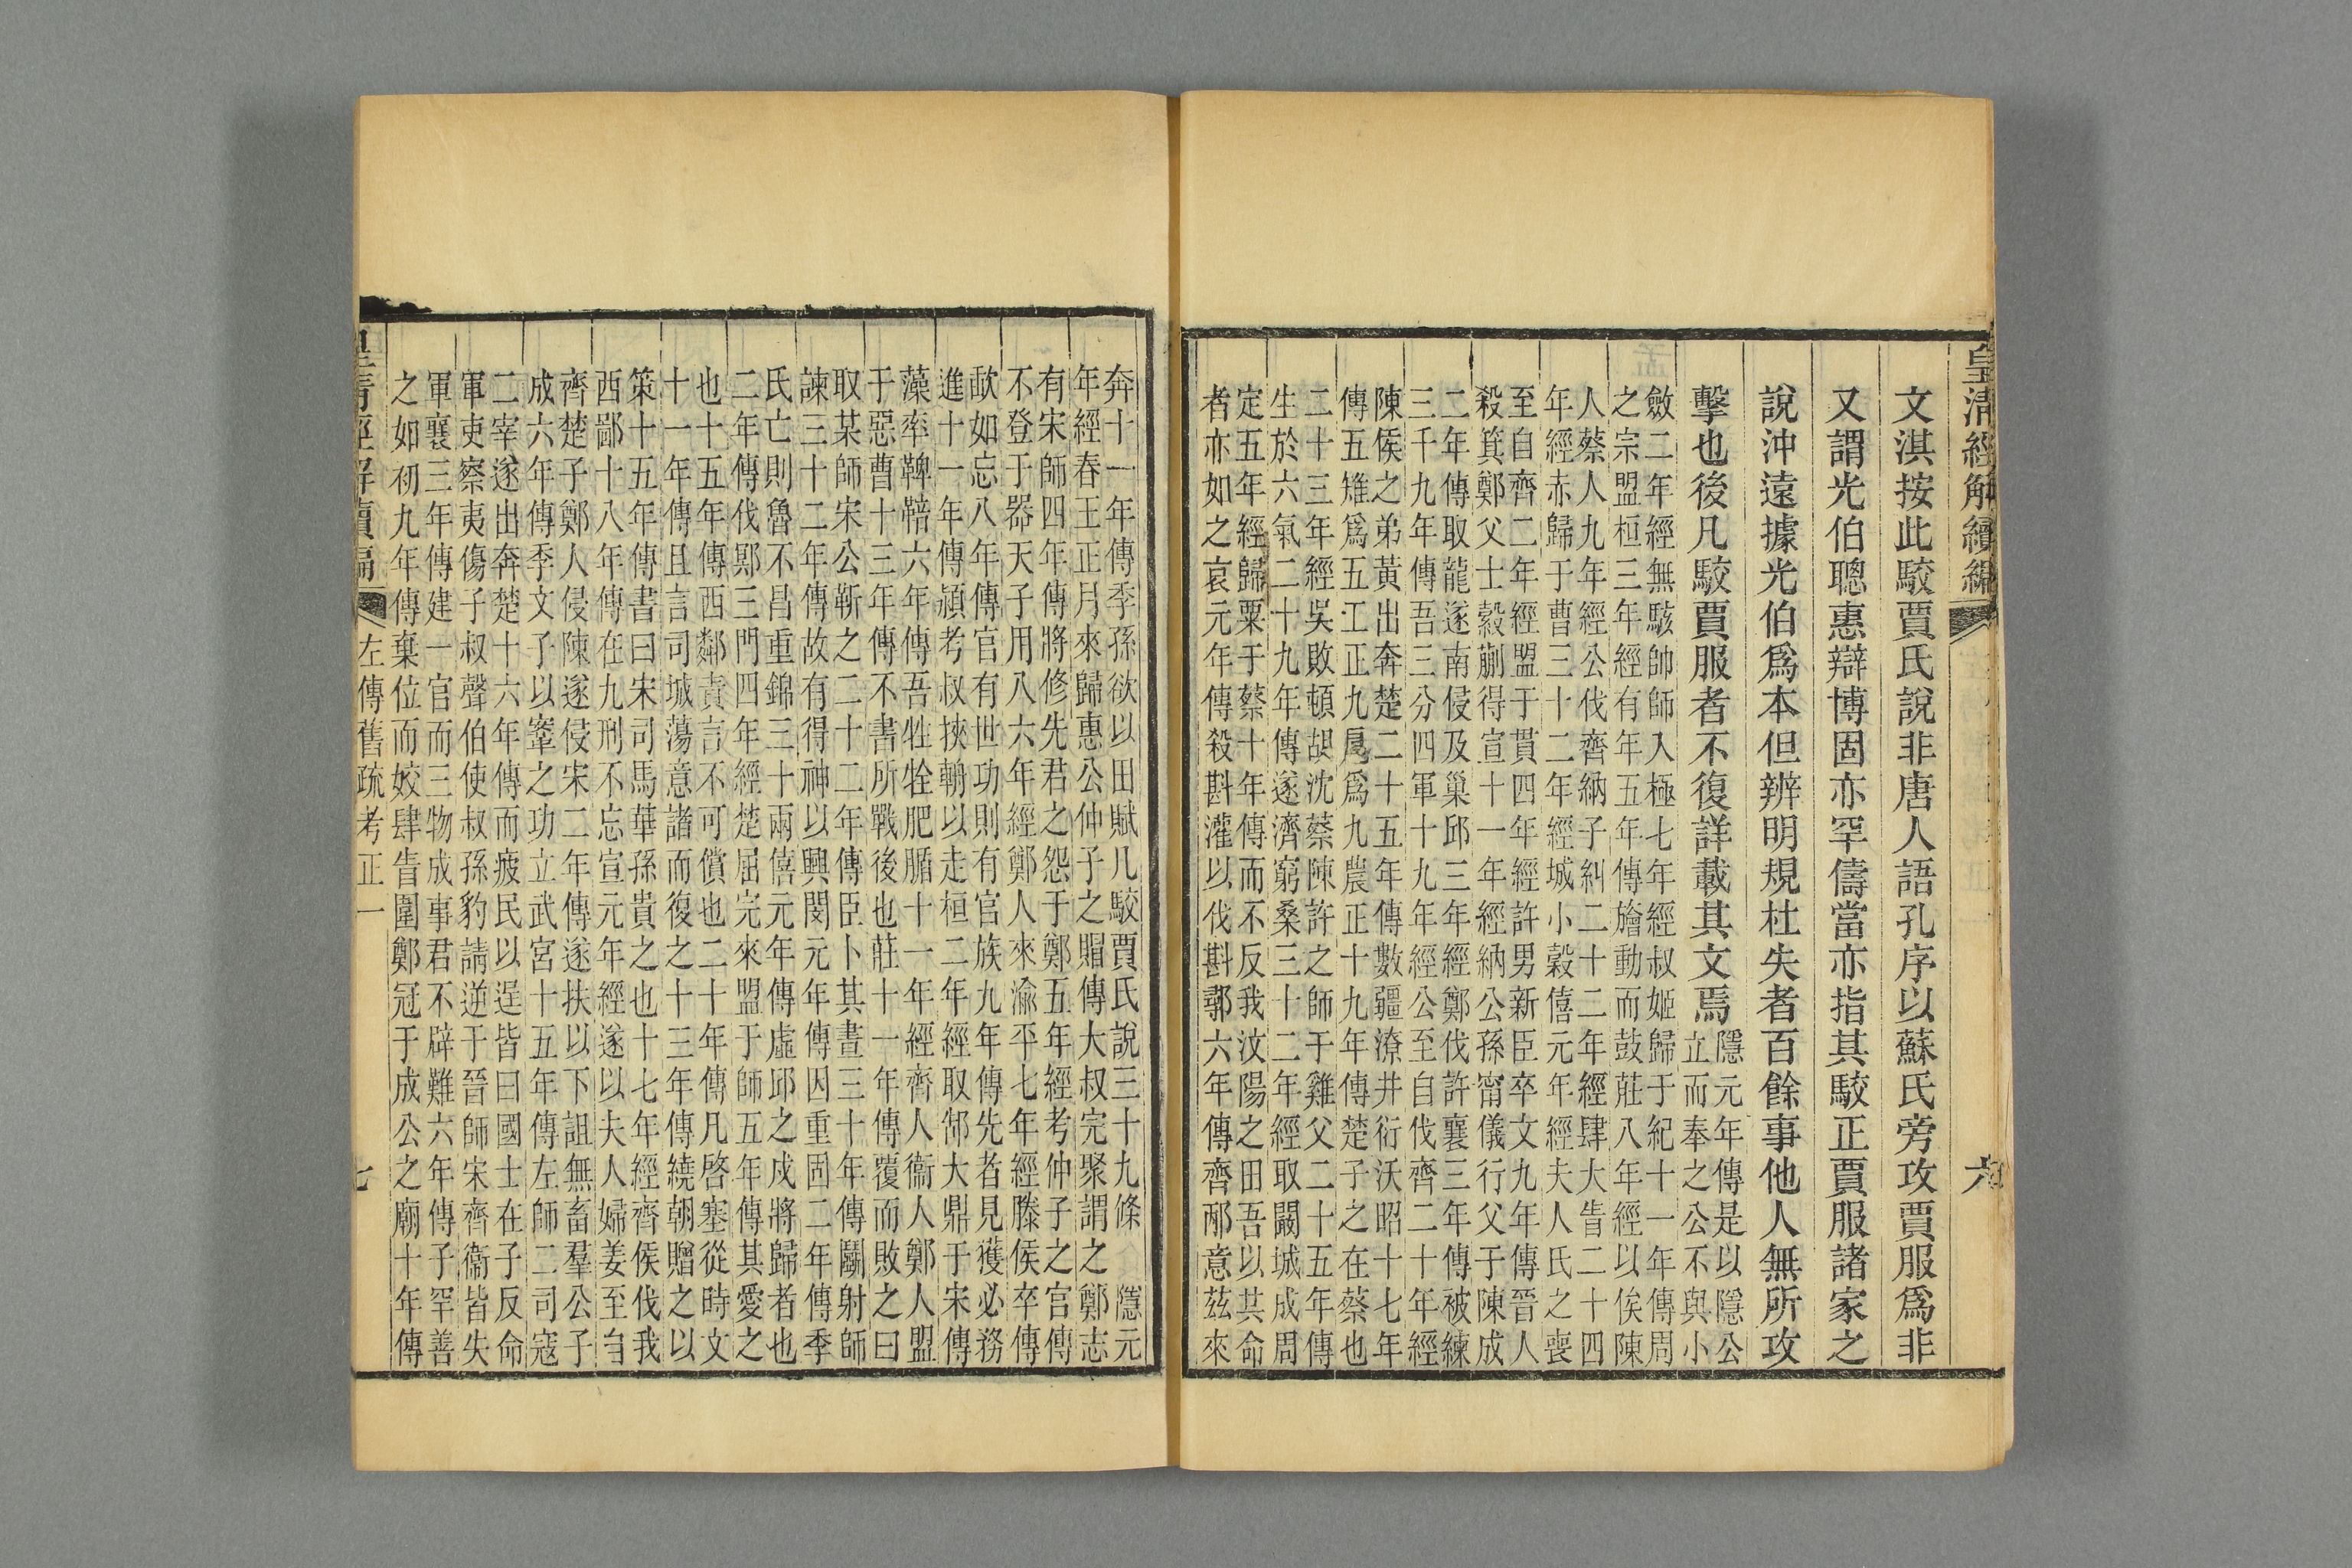 皇清經解續編
六
文淇按此駮賈氏說非唐人語孔序以蘇氏旁攻賈服爲非
又謂光伯聰惠辯博固亦罕儔當亦指其駮正賈服諸家之
說沖遠據光伯爲本但辨明規杜失者百餘事他人無所攻
擊也後凡駮賈服者不復詳載其文焉
隱元年傳是以隱公
立而奉之公不與小
斂二年經無駭帥師入極七年經叔姬歸于紀十一年傳周
之宗盟桓三年經有年五年傳旝動而鼓莊八年經以俟陳
人蔡人九年經公伐齊納子糾二十二年經肆大眚二十四
年經赤歸于曹三十二年經城小穀僖元年經夫人氏之喪
至自齊二年經盟于貫四年經許男新臣卒文九年傳晉人
殺箕鄭父士縠蒯得宣十一年經納公孫甯儀行父于陳成
二年傳取龍遂南侵及巢邱三年經鄭伐許襄三年傳被練
三千九年傳吾三分四軍十九年經公至自伐齊二十年經
陳侯之弟黃出奔楚二十五年傳數疆潦井衍沃昭十七年
傳五雉爲五工正九扈爲九農正十九年傳楚子之在蔡也
二十三年經吳敗頓胡沈蔡陳許之師于雞父二十五年傳
生於六氣二十九年傳遂濟窮桑三十二年經取闞城成周
定五年經歸粟于蔡十年傳而不反我汶陽之田吾以共命
者亦如之哀元年傳殺斟灌以伐斟鄩六年傳齊邴意茲來
奔十一年傳季孫欲以田賦凡駮賈氏說三十九條
隱元
年經春王正月來歸惠公仲子之賵傳大叔完聚謂之鄭志
有宋師四年傳將修先君之怨于鄭五年經考仲子之宮傳
不登于器天子用八六年經鄭人來渝平七年經滕侯卒傳
歃如忘八年傳官有世功則有官族九年傳先者見獲必務
進十一年傳潁考叔挾輈以走桓二年經取郜大鼎于宋傳
藻率鞞鞛六年傳吾牲牷肥腯十一年經齊人衞人鄭人盟
于惡曹十三年傳不書所戰後也莊十一年傳覆而敗之曰
取某師宋公靳之二十二年傳臣卜其晝三十年傳鬭射師
諫三十二年傳故有得神以興閔元年傳因重固二年傳季
氏亡則魯不昌重錦三十兩僖元年傳虛邱之戍將歸者也
二年傳伐鄍三門四年經楚屈完來盟于師五年傳其愛之
也十五年傳西鄰責言不可償也二十年傳凡啓塞從時文
十一年傳且言司城蕩意諸而復之十三年傳繞朝贈之以
策十五年傳書曰宋司馬華孫貴之也十七年經齊侯伐我
西鄙十八年傳在九刑不忘宣元年經遂以夫人婦姜至自
齊楚子鄭人侵陳遂侵宋二年傳遂扶以下詛無畜羣公子
成六年傳季文子以鞌之功立武宮十五年傳左師二司寇
二宰遂出奔楚十六年傳而疲民以逞皆曰國士在子反命
軍吏察夷傷子叔聲伯使叔孫豹請逆于晉師宋齊衞皆失
軍襄三年傳建一官而三物成事君不辟難六年傳子罕善
之如初九年傳棄位而姣肆眚圍鄭冠于成公之廟十年傳
皇清經解續編
左傳舊疏考正一
七